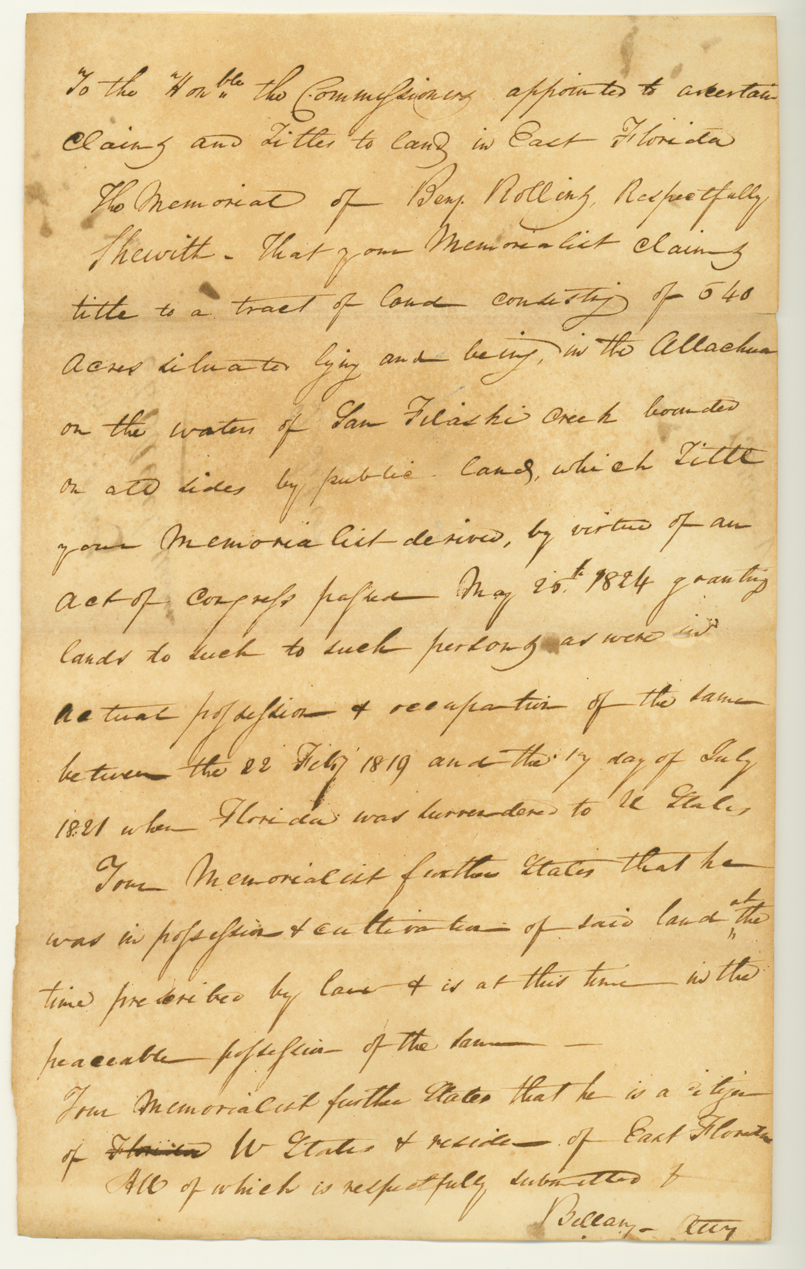 To the Honble the Commissioners appointed to ascertain
Claims and Titles to lands in East Florida
The Memorial of Benj. Rollins, Respectfully
Shewith - That your Memorialist claims
title to a tract of land consisting of 640
Acres situated lying and being, in the Allachua
on the waters of San Filaski Creek bounded
on all sides by public lands, which Title
your Memorialist derived, by virtue of an
Act of Congress passed May 26th 1824 granting
lands to such to such persons as were in
actual possession & occupation of the same
between the 22 Feby 1819 and the 17 day of July
1821 when Florida was surrendered to U States
Your Memorialist further States that he
was in possession & cultivation of said land at the
time prescribed by law & is at this time in the
peaceable possession of the same —
Your Memorialist further States that he is a citizen
of Florida U States & resident of East Florida
All of which is respectfully submitted &
Bellamy Atty